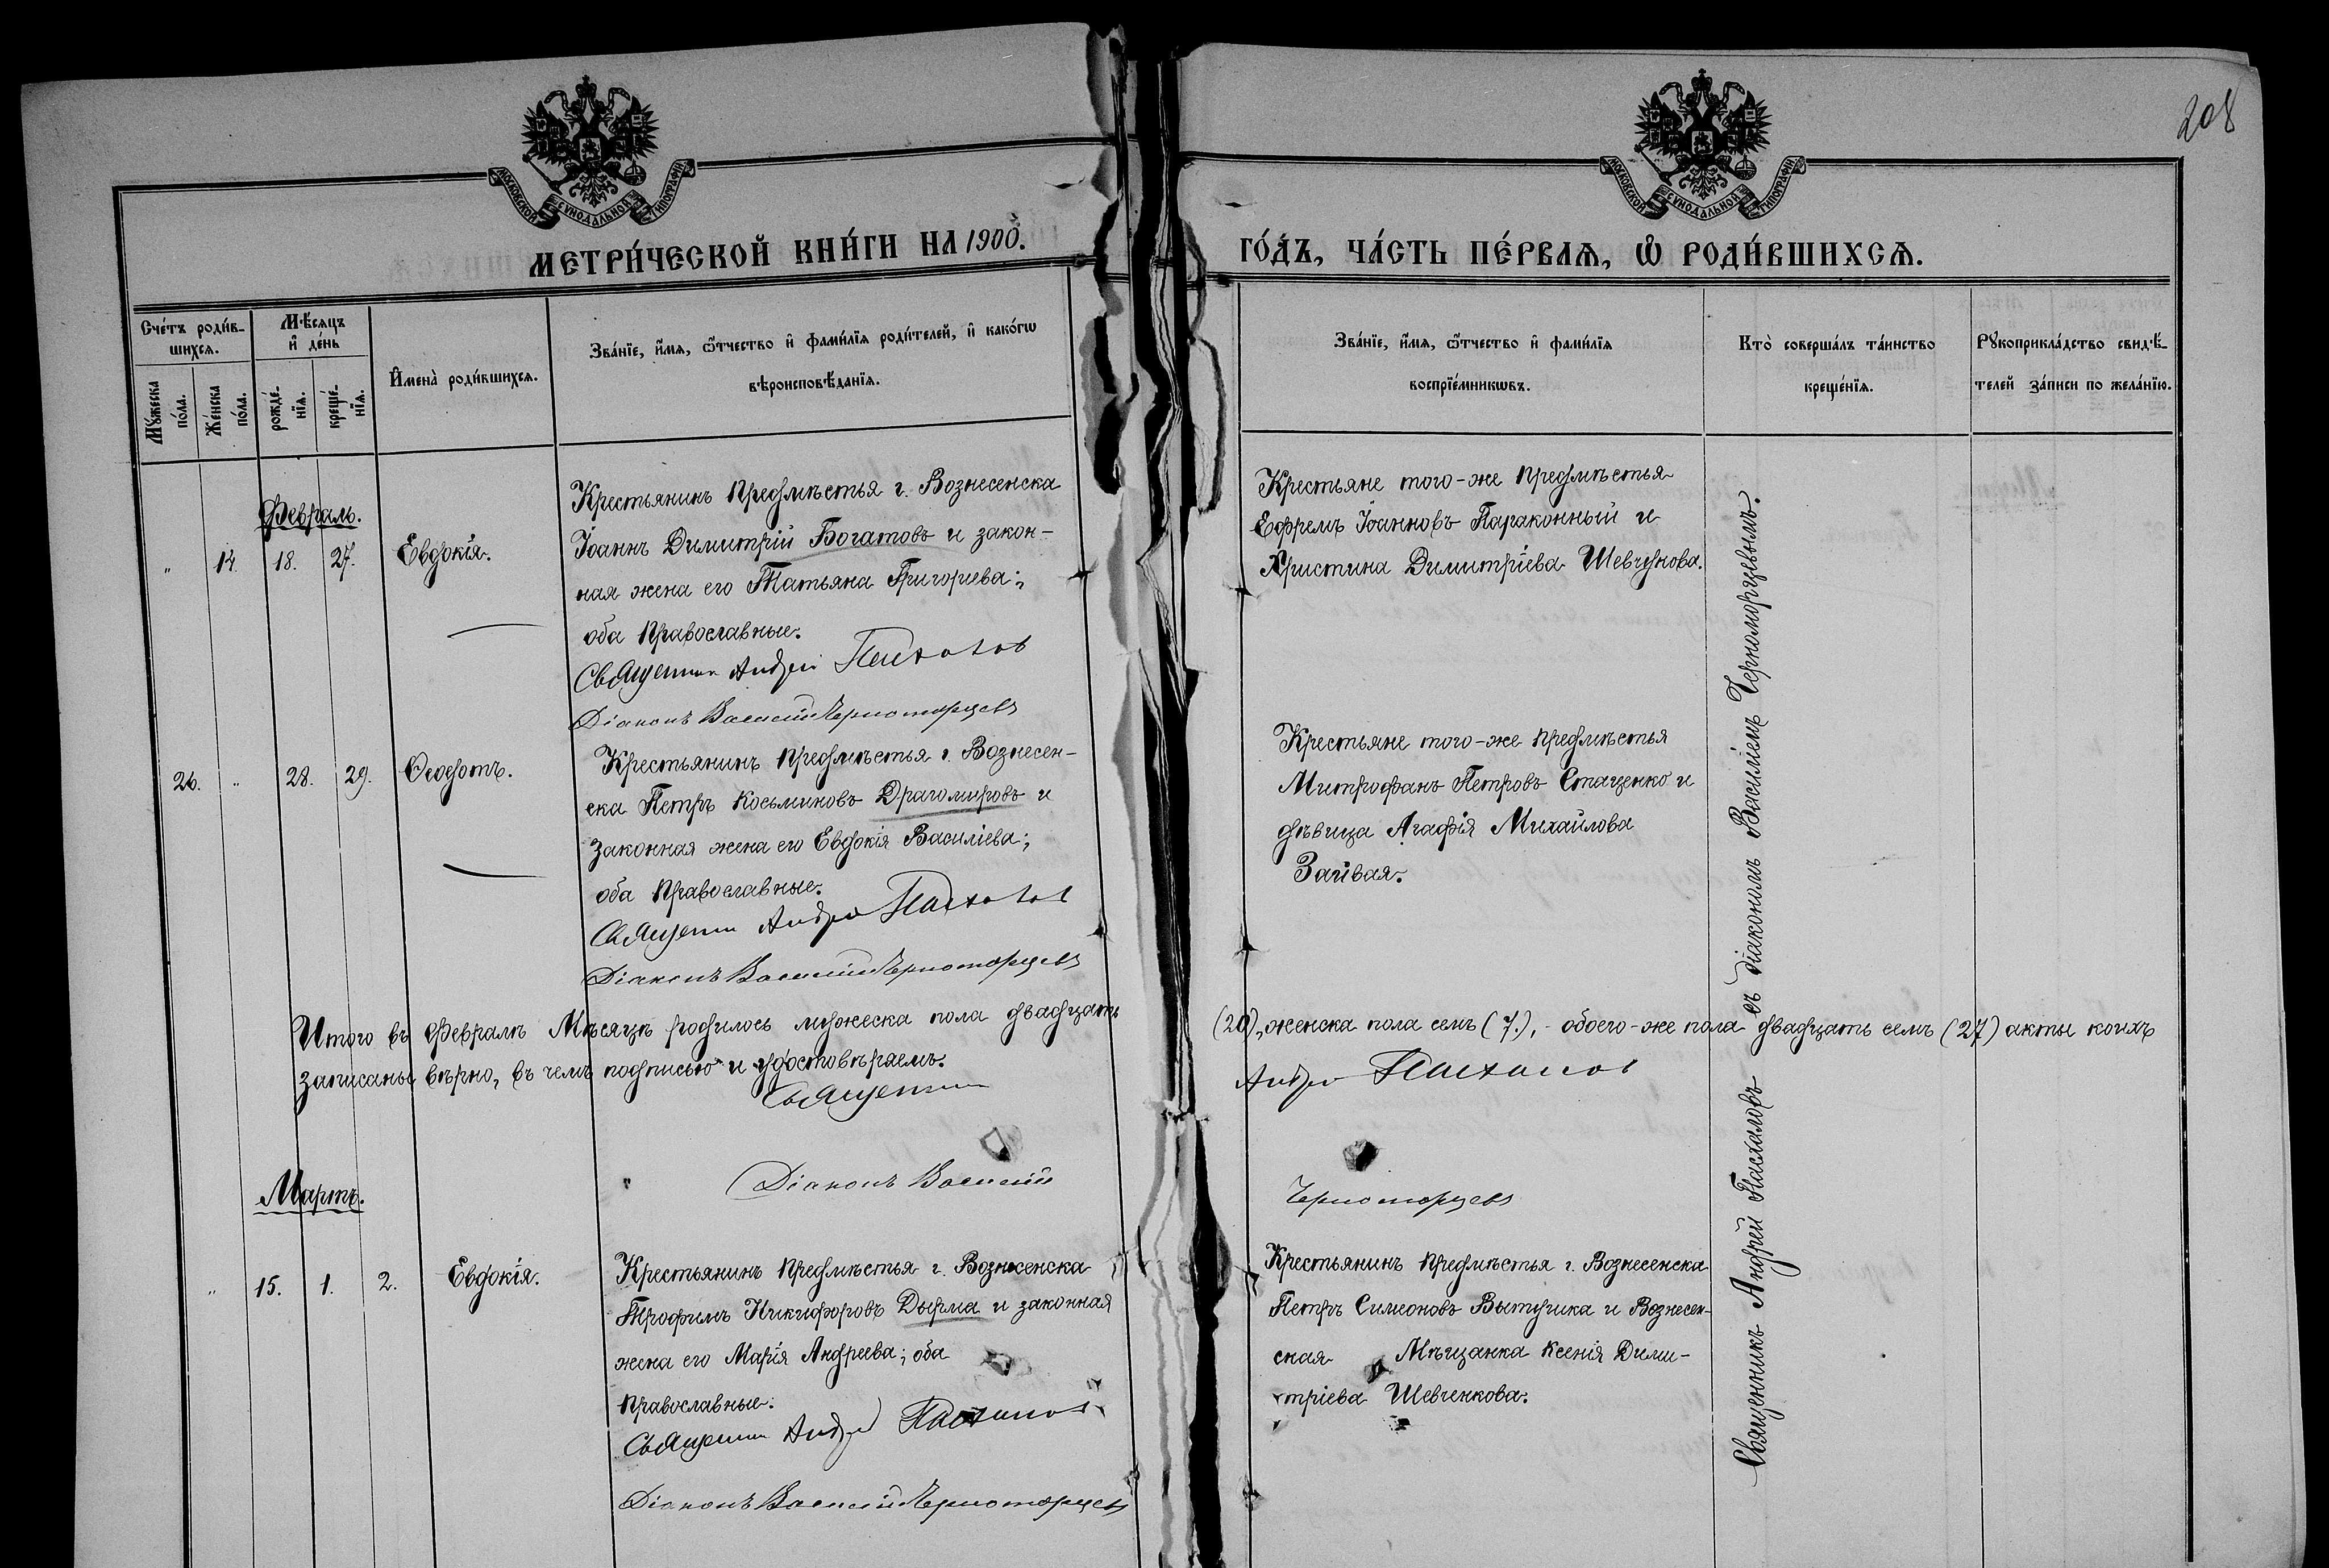 208
МОСКОВСКОЙ СѴНОДАЛЬНОЙ ТИПОГРАФІИ
МОСКОВСКОЙ СѴНОДАЛЬНОЙ ТИПОГРАФІИ
МЕТРИ́ЧЕСКОЙ КНИ́ГИ НА 1900.
ГО́ДЪ, ЧА́СТЬ ПЕ́РВАѦ, Ѡ҆ РОДИ́ВШИХСѦ.
Сче́тъ роди́в-
шихсѧ.
Мꙋ́жеска
по́ла.
Же́нска
по́ла.
Мѣ́сѧцъ
и҆ де́нь
рожде́-
нїѧ.
креще́-
нїѧ.
И҆мена̀ роди́вшихсѧ.
Зва́нїе, и҆́мѧ, ѻ҆́тчество и҆ фами́лїѧ роди́телей, и҆ како́гѡ
вѣроисповѣ́данїѧ.
Зва́нїе, и҆́мѧ, ѻ҆́тчество и҆ фами́лїѧ
воспрїе́мникѡвъ.
Кто̀ соверша́лъ та́инство
креще́нїѧ.
Рꙋкоприкла́дство свидѣ́-
телей за́писи по жела́нїю.
Февраль.
" 14. 18. 27. Евдокія.
Крестьянинъ предмѣстья г. Вознесенска
Іоаннъ Димитрій Богатовъ и закон-
ная жена его Татьяна Григориева;
оба православные.
Священник Андрей Пасхалов
Діаконъ Василій Черноморцевъ
Крестьяне того-же предмѣстья
Ефремъ Іоанновъ Параконный и
Христина Димитріева Шевчукова.
26. " 28. 29. Ѳеодотъ.
Крестьянинъ предмѣстья г. Вознесен-
ска Петръ Косьминовъ Драгомировъ и
законная жена его Евдокія Василіева;
оба православные.
Священник Андрей Пасхалов
Діаконъ Василій Черноморцевъ
Крестьяне того-же предмѣстья
Митрофанъ Петровъ Стаценко и
дѣвица Агафія Михайлова
Заивая.
Итого въ Февралѣ Мѣсяцѣ родилось мужеска пола двадцать (20), женска пола семь (7.), обоего-же пола двадцать семь (27) акты коихъ
записаны вѣрно, въ чемъ подписью и удостовѣряемъ.
Священник Андрей Пасхалов
Діаконъ Василій Черноморцевъ
Мартъ.
" 15. 1. 2. Евдокія.
Крестьянинъ предмѣстья г. Вознесенска
Трофимъ Никифоровъ Дырма и законная
жена его Марія Андреева; оба
православные.
Священник Андрей Пасхалов
Діаконъ Василій Черноморцевъ
Крестьянинъ предмѣстья г. Вознесенска
Петръ Симеоновъ Вытушка и Вознесен-
ская Мѣщанка Ксенія Дими-
тріева Шевченкова.
Священникъ Андрей Пасхаловъ съ діакономъ Василіемъ Черноморцевымъ.